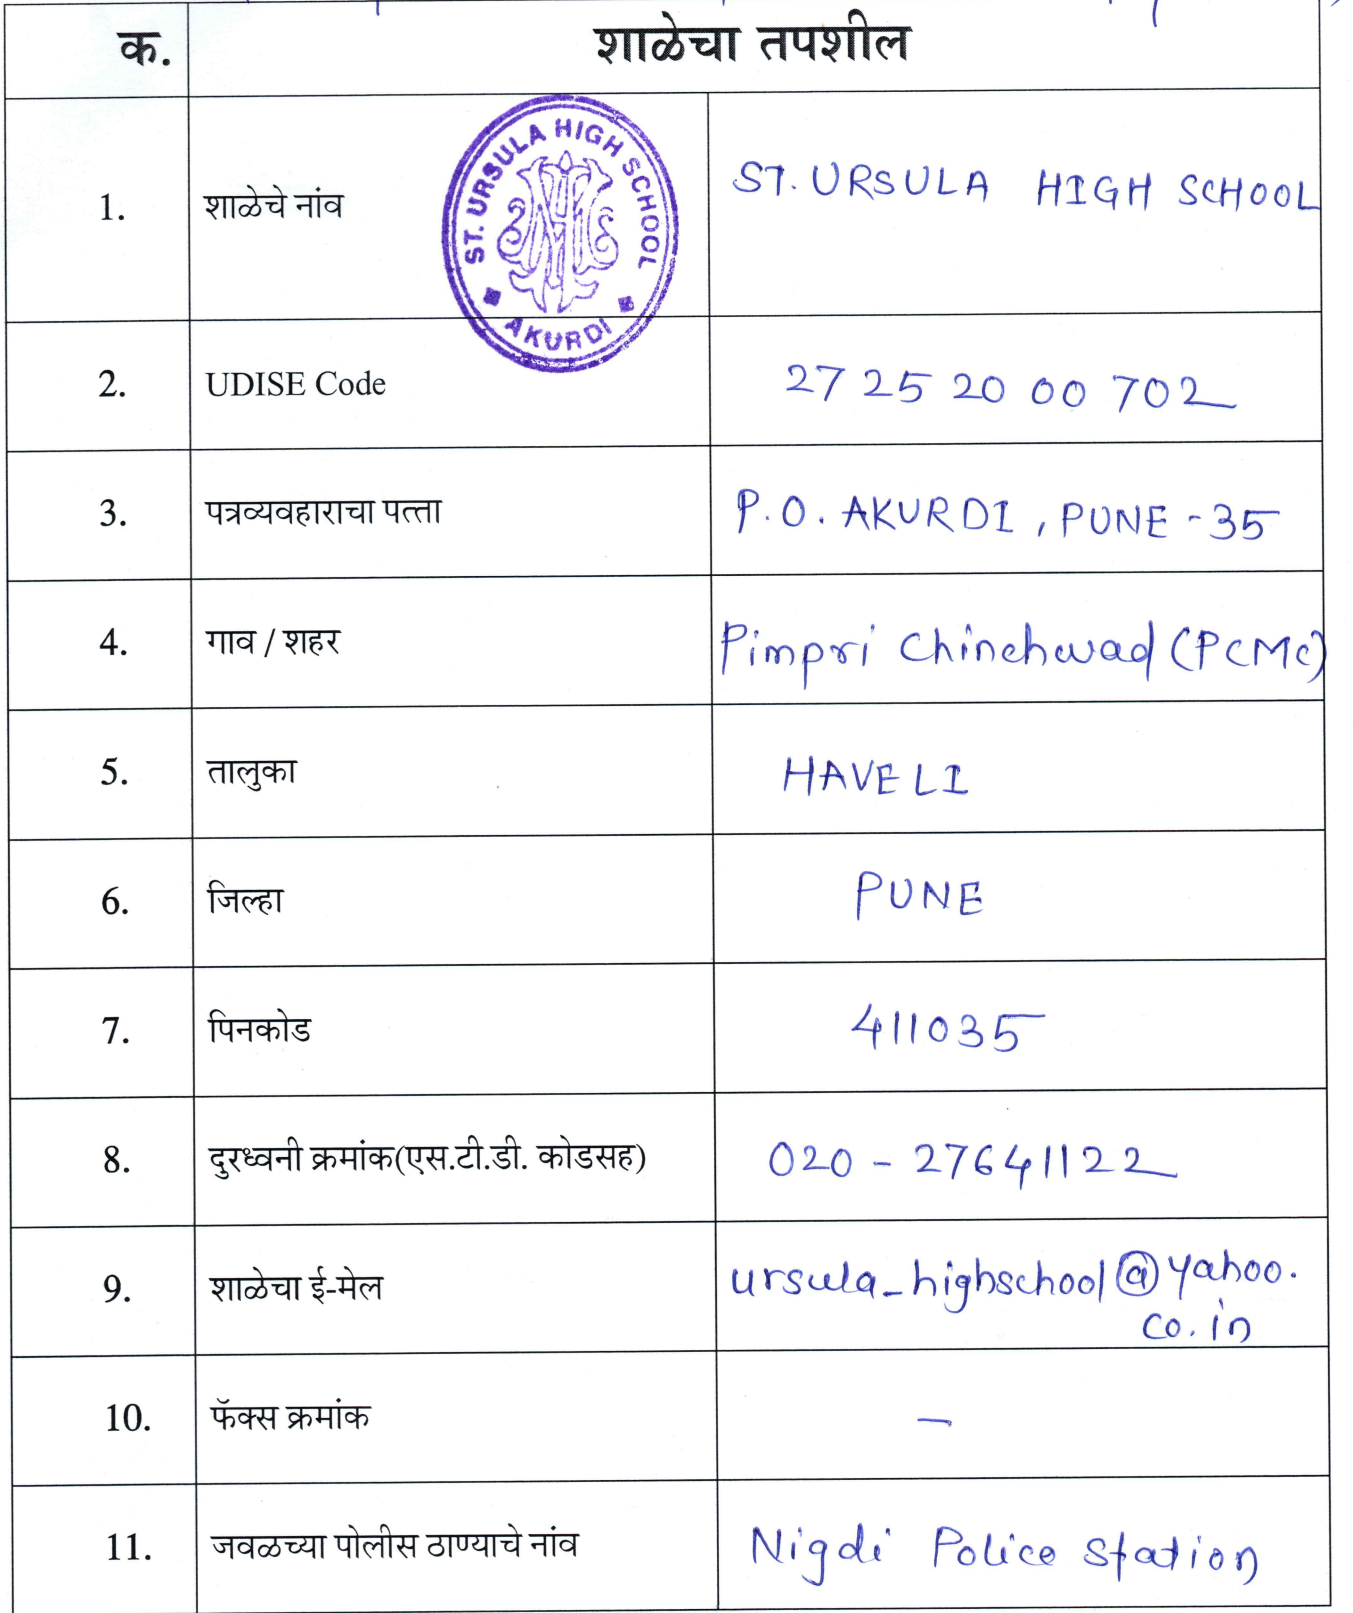 क. शाळेचा तपशील
1. शाळेचे नांव ST. URSULA HIGH SCHOOL
ST. URSULA HIGH SCHOOL
AKURDI
2. UDISE Code 27 25 20 00 702
3. पत्रव्यवहाराचा पत्ता P.O. AKURDI, PUNE - 35
4. गाव / शहर Pimpri Chinchwad (PCMC)
5. तालुका HAVELI
6. जिल्हा PUNE
7. पिनकोड 411035
8. दुरध्वनी क्रमांक(एस.टी.डी. कोडसह) 020 - 27641122
9. शाळेचा ई-मेल ursula_highschool@yahoo.
co.in
10. फॅक्स क्रमांक -
11. जवळच्या पोलीस ठाण्याचे नांव Nigdi Police Station